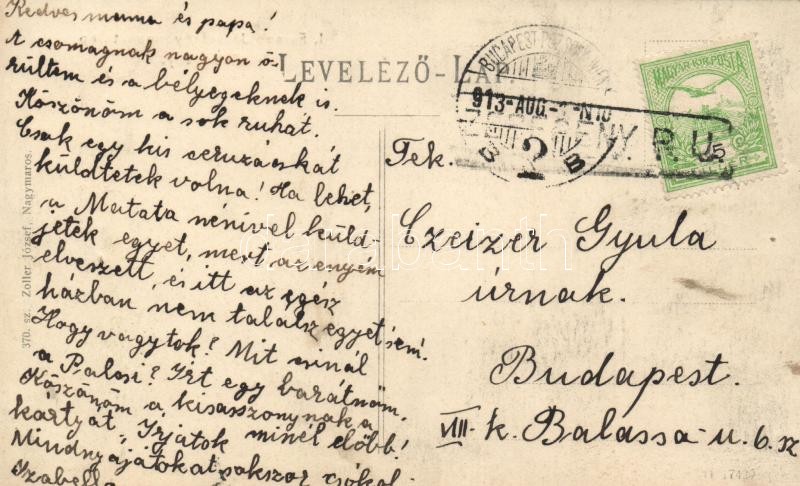 Kedves mama és papa!
A csomagnak nagyon ö-
rültem és a bélyegeknek is.
Köszönöm a sok ruhát.
Csak egy kis ceruzácskát
küldtetek volna! Ha lehet,
a Matata nénivel küld-
jetek egyet, mert az enyém
elveszett, és itt az egész
házban nem találsz egyet sem.
Hogy vagytok? Mit csinál
a Palcsi? Irt egy barátnőm.
Köszönöm a kisasszonynak a
kártyát. Irjatok minél előbb!
Mindnyájatokat sokszor csókol
Izabella
370. sz. Zoller József, Nagymaros.
LEVELEZŐ-LAP
BUDAPEST
913-AUG.
2
B B
P. U.
MAGYAR KIR. POSTA
5
Tek.
Czeizer Gyula
úrnak.
Budapest.
VIII. k. Balassa-u. 6. sz
darabanth